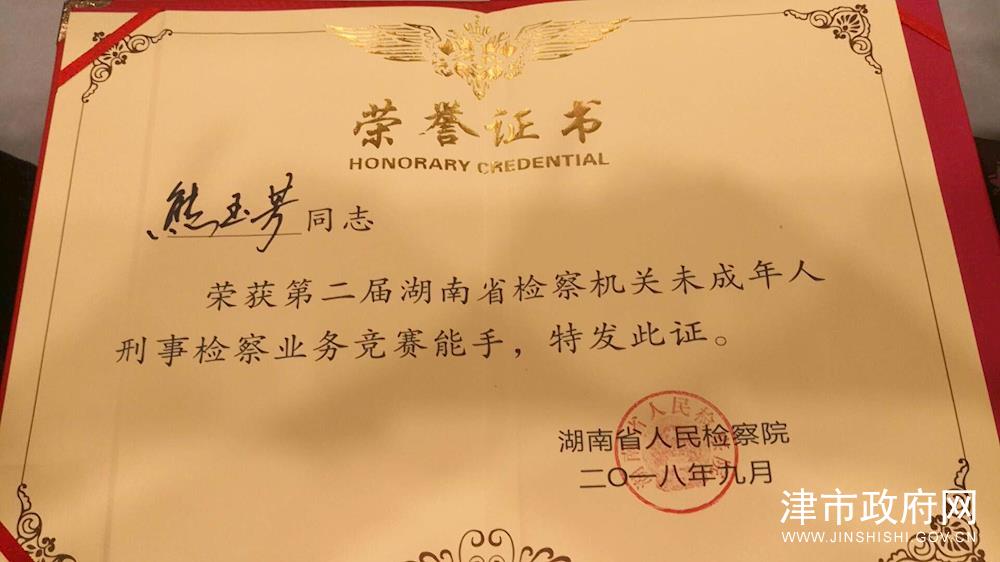 荣誉证书
HONORARY CREDENTIAL
熊玉芳同志
荣获第二届湖南省检察机关未成年人
刑事检察业务竞赛能手，特发此证。
湖南省人民检察院
二〇一八年九月
湖南省人民检察院
津市政府网
WWW.JINSHISHI.GOV.CN